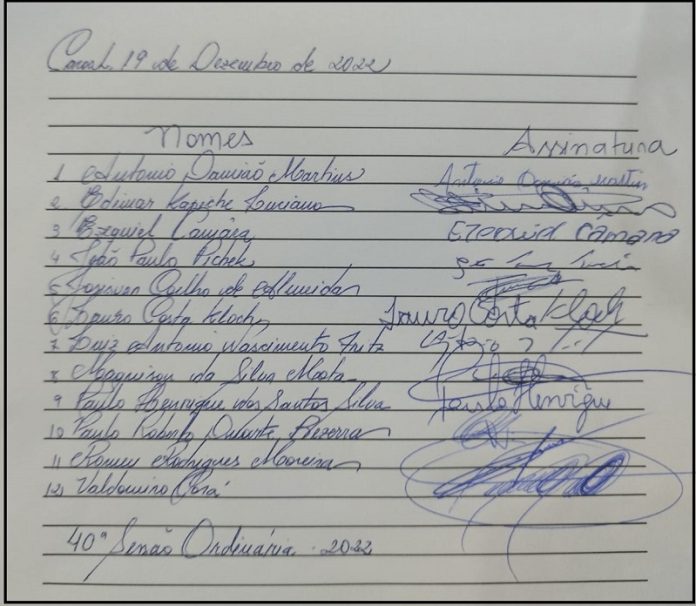 19 de Dezembro de 2022
Nomes Assinatura
1 Antonio Damião Martins Antonio Damião Martins
2 Edimar Luciano
3 Ezequiel Câmara Ezequiel Câmara
4 João Paulo Pichek
5 Coelho de Almeida
6 Lauro Costa Kloch Lauro Costa Kloch
7 Luiz Antonio Nascimento Fritz
8 da Silva Mota
9 Paulo Henrique dos Santos Silva Paulo Henrique
10 Paulo Roberto Duarte Bezerra
11 Romeu Rodrigues Moreira
12 Valdomiro Corá
40ª Sessão Ordinária. 2022